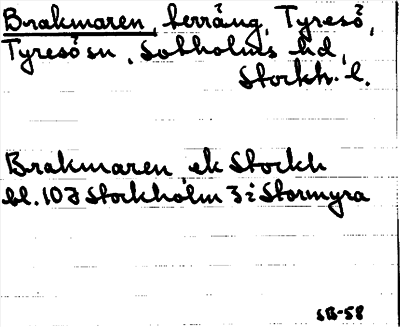 Brakmaren, terräng, Tyresö,
Tyresö sn, Sotholms hd,
Stockh. l.
Brakmaren, ek Stockh
bl. 10J Stockholm 3 i Stormyra
SB-58